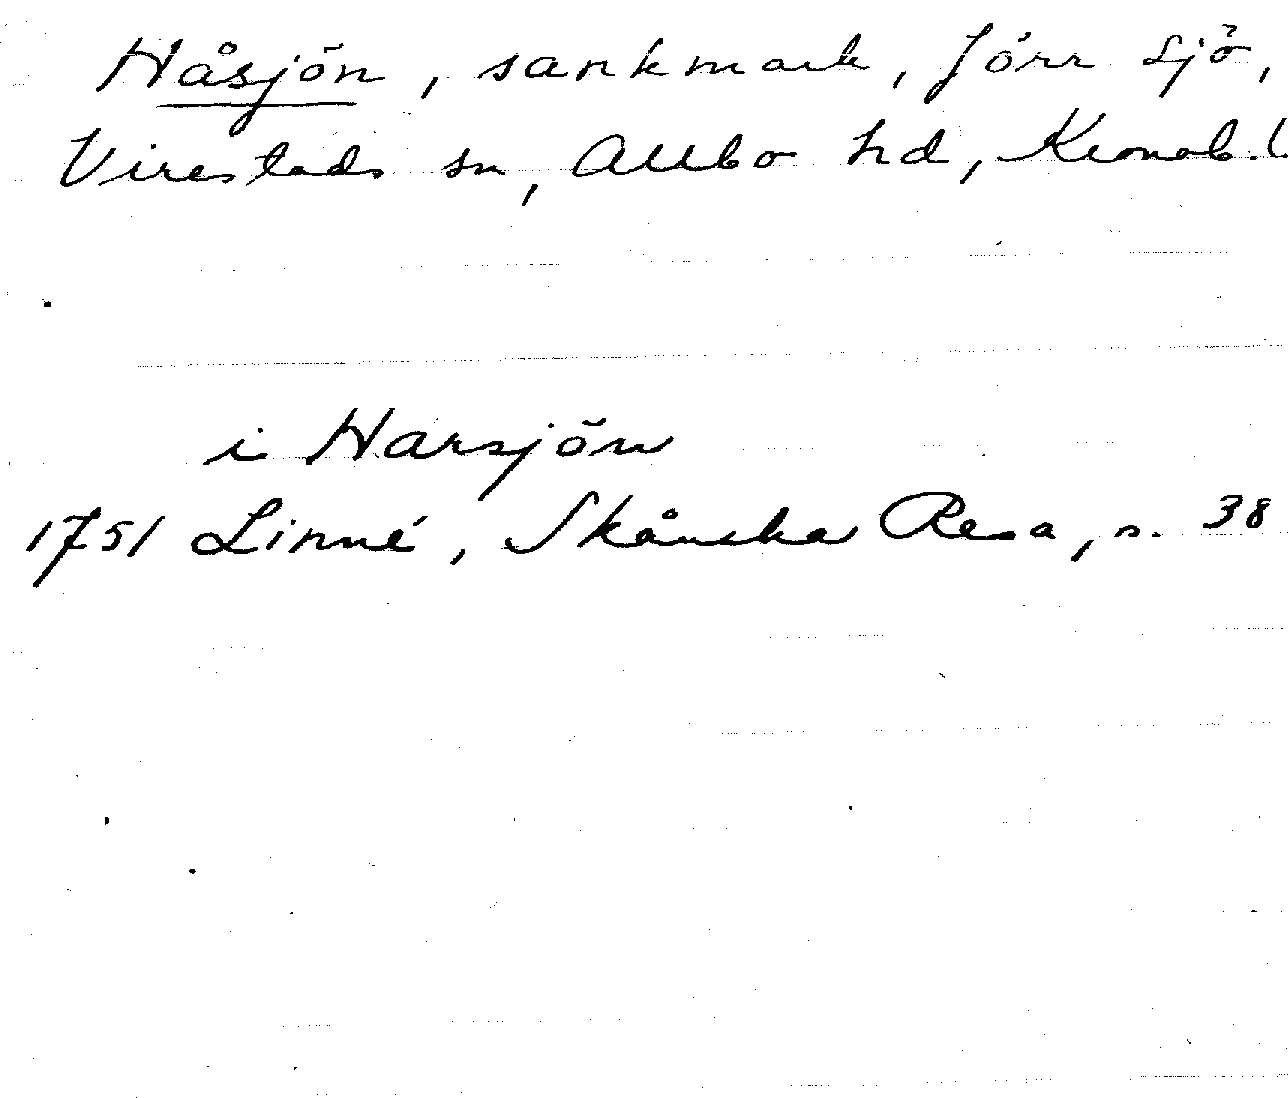 Håsjön, sankmark, förr sjö,
Virestads sn, Allbo hd, Kronob. l
i Harsjön
1751 Linné, Skånska Resa, s. 38